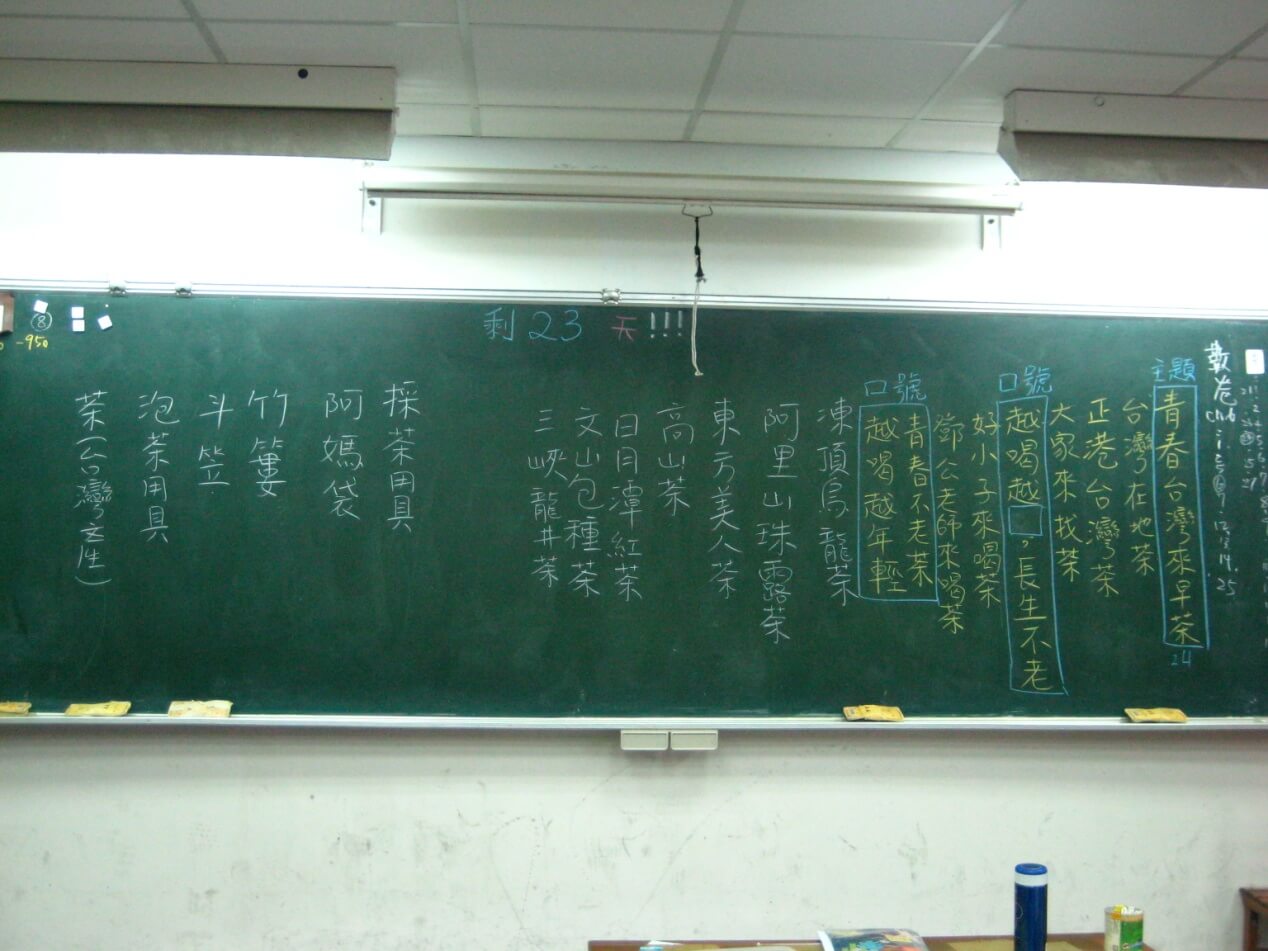 剩23天!!!
數卷
主題
青春台灣來早茶
24
台灣在地茶
正港台灣茶
大家來找茶
口號
越喝越□，長生不老
好小子來喝茶
鄧公老師來喝茶
口號
青春不老茶
越喝越年輕
凍頂烏龍茶
阿里山珠露茶
東方美人茶
高山茶
日月潭紅茶
文山包種茶
三峽龍井茶
採茶用具
阿媽袋
竹簍
斗笠
泡茶用具
茶(台灣文性)
⑧
-950